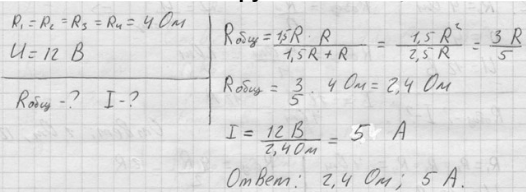 R₁ = R₂ = R₃ = R₄ = 4 Ом
U = 12 В
Rобщ - ? I - ?
Rобщ = 1,5R · R / 1,5R + R = 1,5 R² / 2,5 R = 3 R / 5
Rобщ = 3/5 · 4 Ом = 2,4 Ом
I = 12 В / 2,4 Ом = 5 А
Ответ: 2,4 Ом; 5 А.